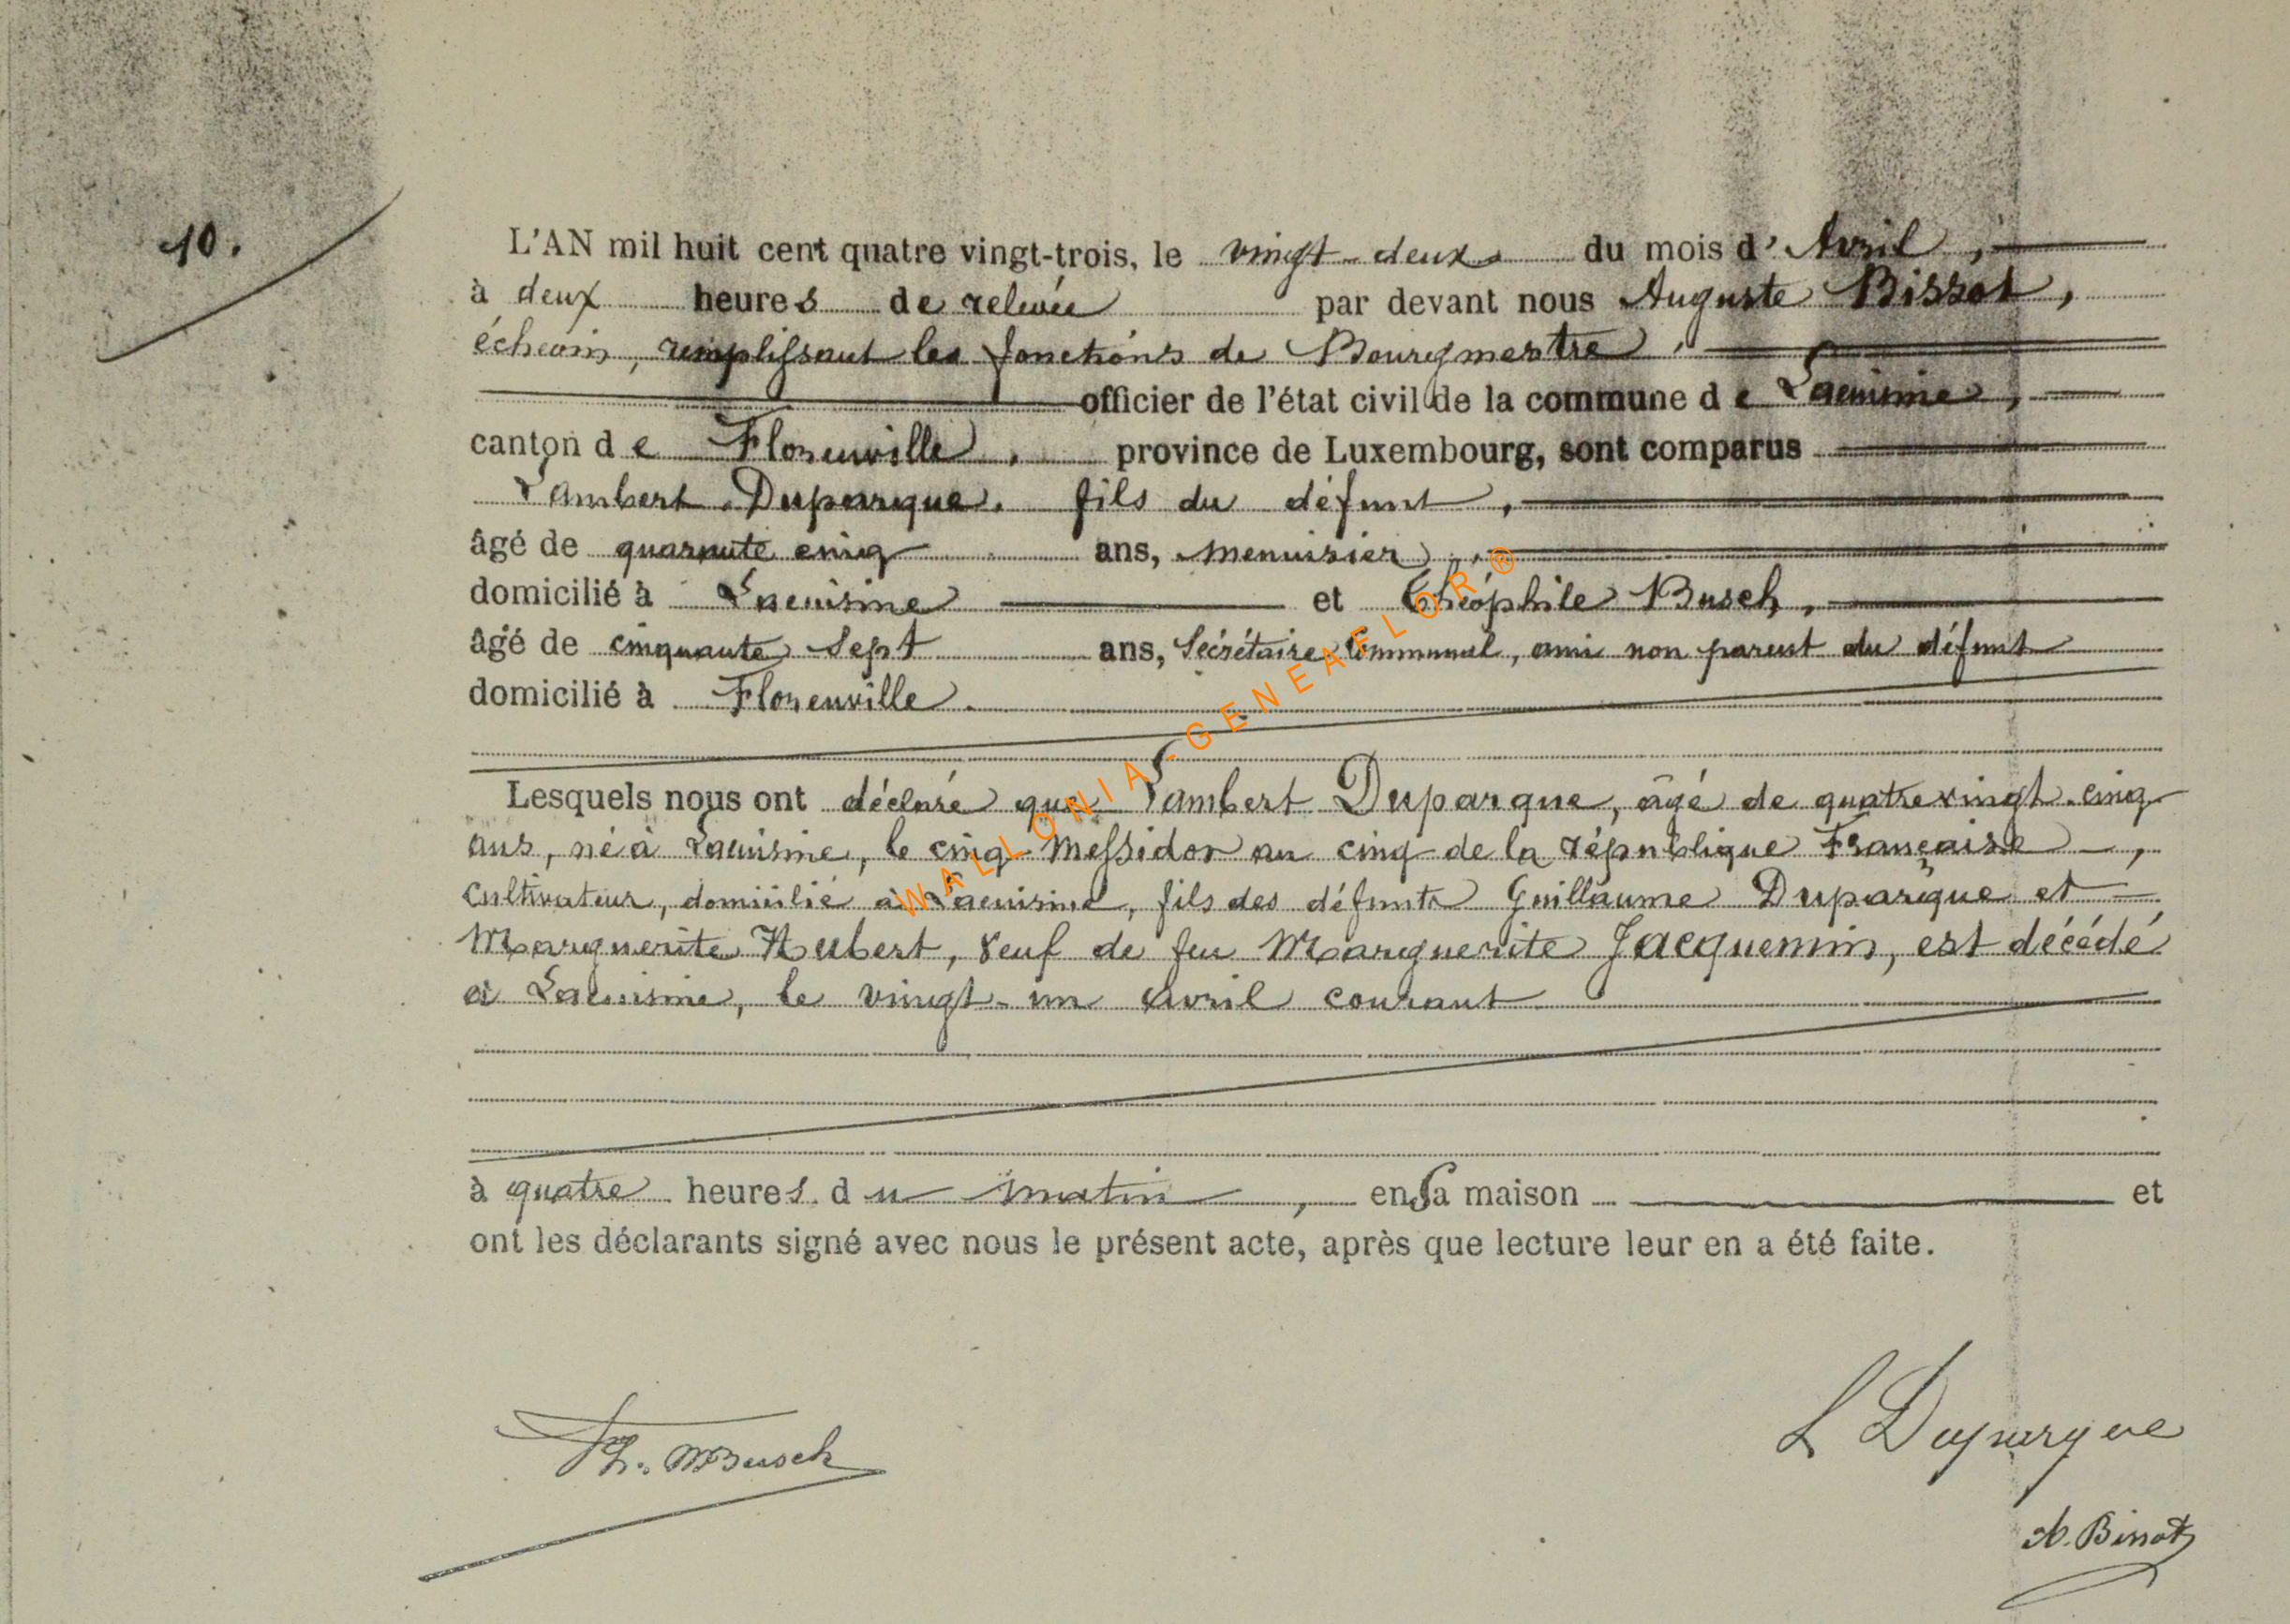 10.
L'AN mil huit cent quatre vingt-trois, le vingt-deux du mois d'Avril,
à deux heures de relevée par devant nous Auguste Bissot,
échevin, remplissant les fonctions de Bourgmestre,
officier de l'état civil de la commune de Lacuisine,
canton de Florenville, province de Luxembourg, sont comparus
Lambert Duparque, fils du défunt,
âgé de quarante cinq ans, menuisier,
domicilié à Lacuisine et Théophile Busch,
âgé de cinquante sept ans, Sécrétaire Communal, ami non parent du défunt
domicilié à Florenville.
Lesquels nous ont déclaré que Lambert Duparque, âgé de quatre vingt-cinq
ans, né à Lacuisine, le cinq Messidor an cinq de la république Française,
cultivateur, domicilié à Lacuisine, fils des défunts Guillaume Duparque et
Marguerite Hubert, veuf de feu Marguerite Jacquemin, est décédé
à Lacuisine, le vingt-un avril courant
à quatre heures du matin, en sa maison et
ont les déclarants signé avec nous le présent acte, après que lecture leur en a été faite.
L Duparque
Th. Busch
A. Bissot
WALLONIA-GENEAFLOR®